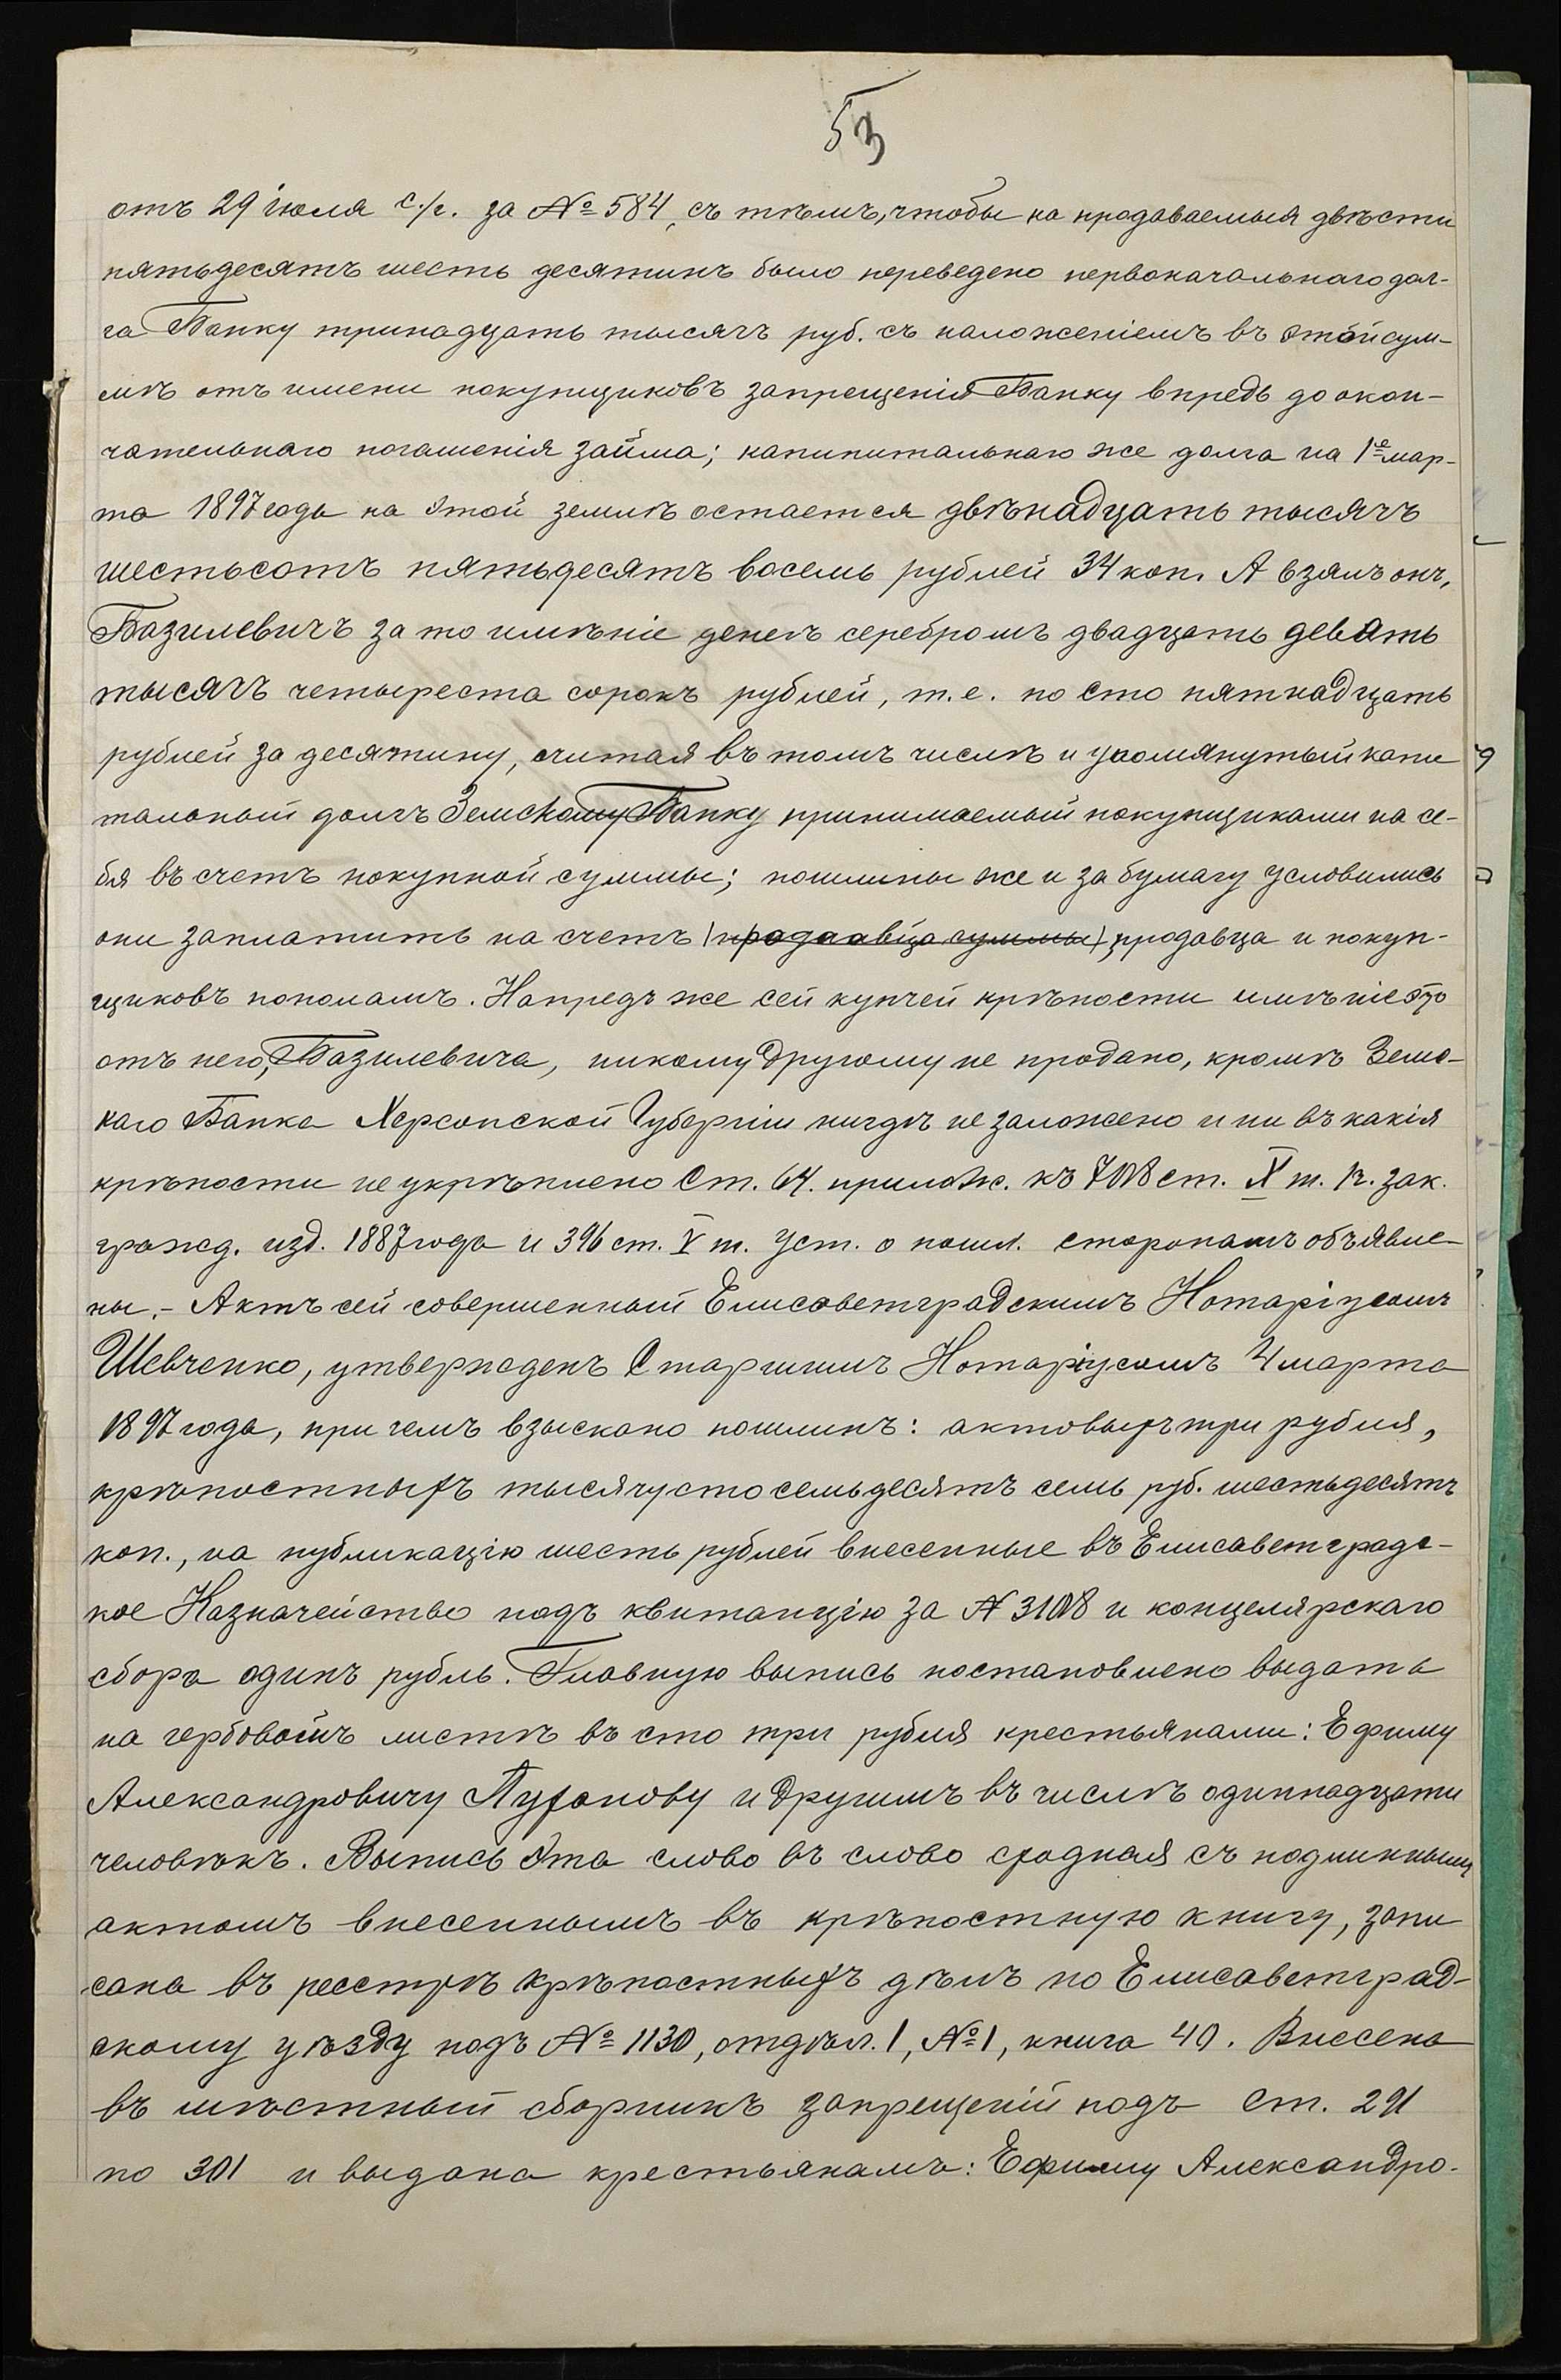 53
отъ 29 іюля с./г. за № 584, съ тѣмъ, чтобы на продаваемыя двѣсти
пятьдесятъ шесть десятинъ было переведено первоначальнаго дол-
га Банку тринадцать тысячъ руб. съ наложеніемъ въ этой сум-
мѣ отъ имени покупщиковъ запрещенія Банку впредь до окон-
чательнаго погашенія займа; капипитальнаго же долга на 1е мар-
та 1897 года на этой землѣ остается двѣнадцать тысячъ
шестьсотъ пятьдесятъ восемь рублей 34 коп. А взялъ онъ,
Базилевичъ за то имѣніе денегъ серебромъ двадцать девять
тысячъ четыреста сорокъ рублей, т.е. по сто пятнадцать
рублей за десятину, считая въ томъ числѣ и упомянутый капи
тальный долгъ Земскому Банку принимаемый покупщиками на се-
бя въ счетъ покупной суммы; пошлины же и за бумагу условились
они заплатить на счетъ (продаавца суммы) продавца и покуп-
щиковъ пополамъ. Напредъ же сей купчей крѣпости имѣніе это
отъ него, Базилевича, никому другому не продано, кромѣЗемс-
каго Банка Херсонской Губерніи нигдѣ не заложено и ни въ какія
крѣпости не укрѣплено Ст. 64. прилож. къ 708 ст. X т. 1ч. зак.
гражд. изд. 1887 года и 396 ст. V т. Уст. о пошл. сторонамъ объявле-
ны. - Актъ сей совершенный Елисаветградскимъ Нотаріусомъ
Шевченко, утвержденъ Старшимъ Нотаріусомъ 4 марта
1897 года, при чемъ взыскано пошлинъ: актовыхъ три рубля,
крѣпостныхъ тысячу сто семьдесятъ семь руб. шестьдесятъ
коп., на публикацію шесть рублей внесенные въ Елисаветградс-
кое Казначейство подъ квитанцію за № 3108 и канцелярскаго
сбора одинъ рубль. Главную выпись постановлено выдать
на гербовомъ листѣ въ сто три рубля крестьянами: Ефиму
Александровичу Пуханову и другимъ въ числѣ одиннадцати
человѣкъ. Выпись эта слово въ слово сходная съ подлиннымъ
актомъ внесеннымъ въ крѣпостную книгу, запи
сана въ реестрѣ крѣпостныхъ дѣлъ по Елисаветград-
скому уѣзду подъ № 1130, отдѣл. 1, № 1, книга 40. Внесена
въ мѣстный сборникъ запрещеній подъ ст. 291
по 301 и выдана крестьянамъ: Ефиму Александро-